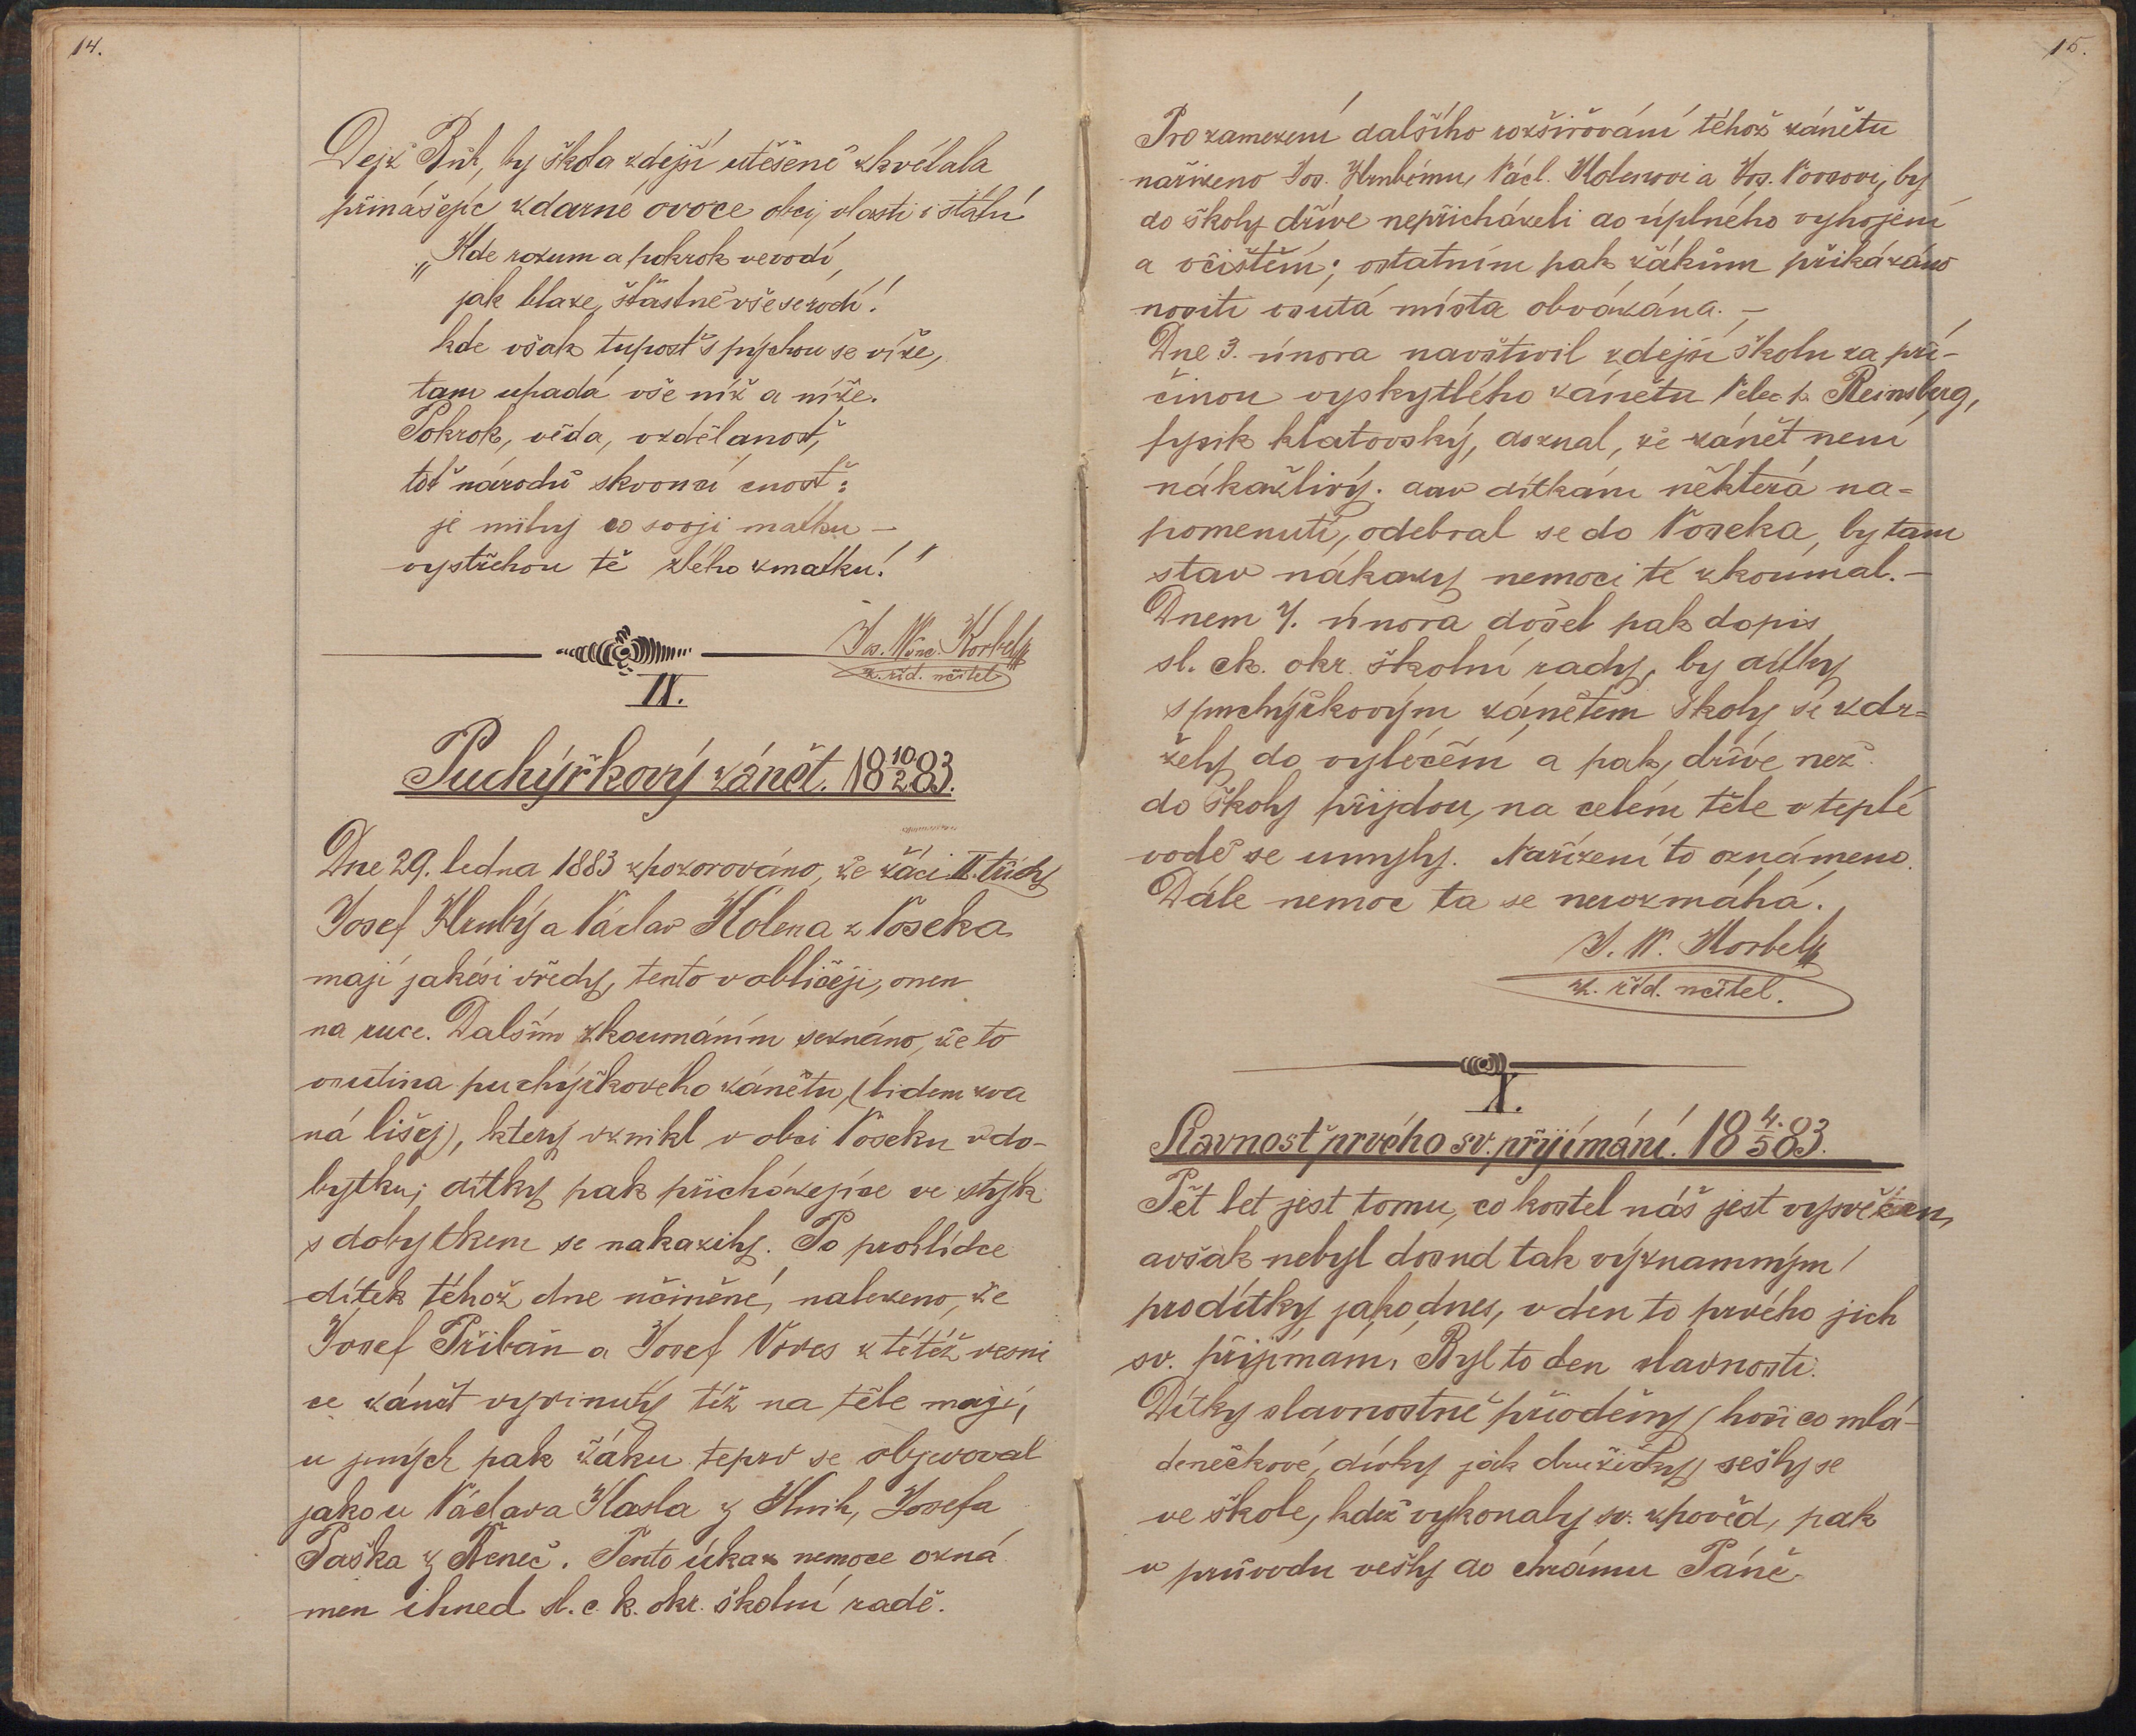 14.
Dejž Bůh, by škola zdejší utěšeně zkvétala
přinášejíc zdarné ovoce obci, vlasti i státu
„Kde rozum a pokrok vévodí,
jak blaze, šťastně vše se rodí!
kde však tuposť s pýchou se víže,
tam upadá vše níž a níže.
Pokrok, věda, vzdělanosť,
toť národů skvoucí cnosť:
je miluj co svoji matku –
vystřehou tě zlého zmatku!"
Jos. Korbel
z. říd. učitel
IX.
Puchýřkový zánět. 18 10/2 83.
Dne 29. ledna 1883 zpozorováno, že žáci II. třídy
Josef Hrubý a Václav Holena z Voseka
mají jakési vředy, tento v obličeji, onen
na ruce. Dalším zkoumáním seznáno, že to
osutina puchýřkového zánětu, (lidem zva
ná lišej), který vznikl v obci Voseku v do-
bytku; dítky pak přicházejíce ve styk
s dobytkem se nakazily. Po prohlídce
dítek téhož dne učiněné, nalezeno, že
Josef Přibáň a Josef Voves z tétéž vesni
ce zánět vyvinutý též na těle mají,
u jiných pak žáku teprv se objevoval
jako u Václava Hasla z Hnih, Josefa
Paška z Beneč. Tento úkaz nemoce ozná
men ihned sl. c. k. okr. školní radě.
15.
Pro zamezení dalšího rozšiřování téhož zánětu
nařízeno Jos. Hrubému, Václ. Holenovi a Jos. Vovsovi, by
do školy dříve nepřicházeli do úplného vyhojení
a očištění; ostatním pak žákům přikázáno
nositi osutá místa obvázána. –
Dne 3. února navštívil zdejší školu za pří-
činou vyskytlého zánětu Velec. p. Reinsberg,
fysik klatovský, doznal, že zánět není
nákažlivý. dav dítkám některá na-
pomenutí, odebral se do Voseka, by tam
stav nákazy nemoci té zkoumal. –
Dnem 7. února došel pak dopis
sl. ck. okr. školní rady, by dítky
s puchýřkovým zánětem školy se zdr-
žely do vyléčení a pak, dříve než
do školy přijdou, na celém těle v teplé
vodě se umyly. Nařízení to oznámeno.
Dále nemoc ta se nerozmáhá.
J. V. Korbel
z. říd. učitel.
X.
Slavnosť prvého sv. přijímání. 18 4./5 83.
Pět let jest tomu, co kostel náš jest vysvěcen,
avšak nebyl dosud tak významným
pro dítky, jako dnes, v den to prvého jich
sv. přijímání. Byl to den slavnosti.
Dítky slavnostně přioděny (hoši co mlá-
denečkové, dívky jak družičky) sešly se
ve škole, kdež vykonaly sv. zpověď, pak
v průvodu vešly do chrámu Páně.